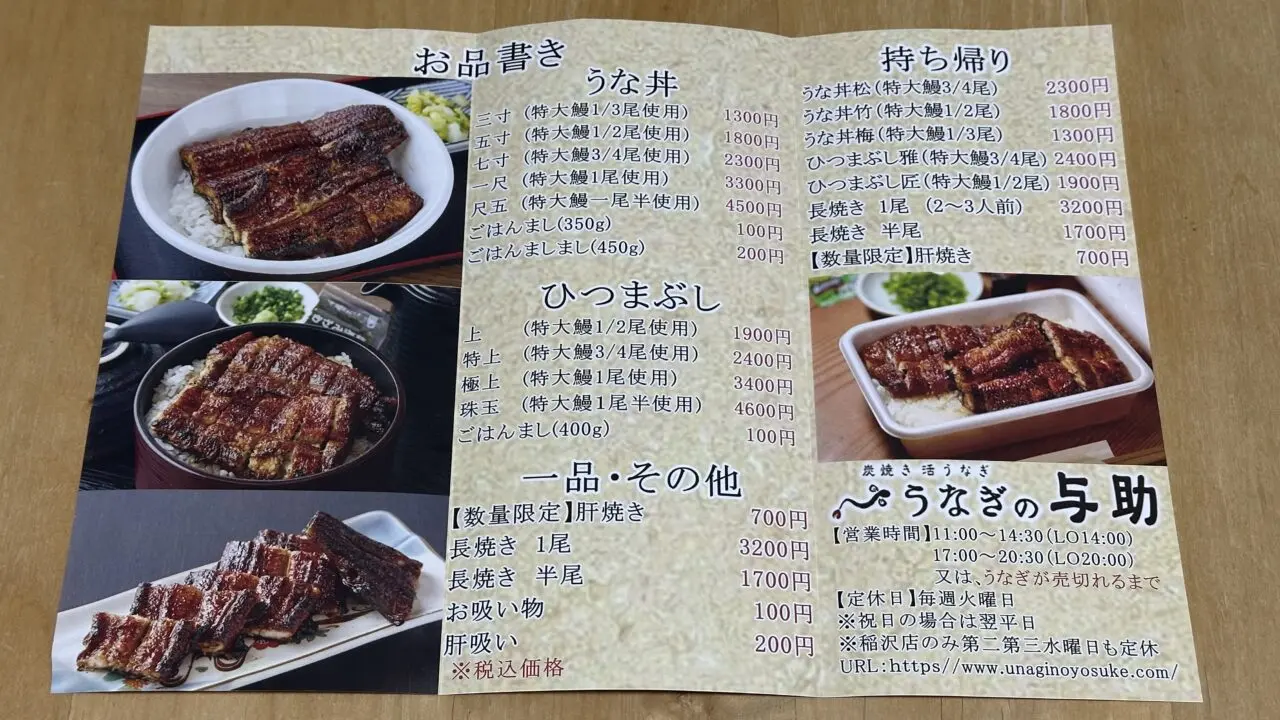 お品書き
うな丼
三寸 (特大鰻1/3尾使用) 1300円
五寸 (特大鰻1/2尾使用) 1800円
七寸 (特大鰻3/4尾使用) 2300円
一尺 (特大鰻1尾使用) 3300円
尺五 (特大鰻一尾半使用) 4500円
ごはんまし(350g) 100円
ごはんましまし(450g) 200円
ひつまぶし
上 (特大鰻1/2尾使用) 1900円
特上 (特大鰻3/4尾使用) 2400円
極上 (特大鰻1尾使用) 3400円
珠玉 (特大鰻1尾半使用) 4600円
ごはんまし(400g) 100円
一品・その他
【数量限定】肝焼き 700円
長焼き 1尾 3200円
長焼き 半尾 1700円
お吸い物 100円
肝吸い 200円
※税込価格
持ち帰り
うな丼松(特大鰻3/4尾) 2300円
うな丼竹(特大鰻1/2尾) 1800円
うな丼梅(特大鰻1/3尾) 1300円
ひつまぶし雅(特大鰻3/4尾) 2400円
ひつまぶし匠(特大鰻1/2尾) 1900円
長焼き 1尾 (2～3人前) 3200円
長焼き 半尾 1700円
【数量限定】肝焼き 700円
炭焼き活うなぎ
うなぎの与助
【営業時間】11:00～14:30(LO14:00)
17:00～20:30(LO20:00)
又は、うなぎが売切れるまで
【定休日】毎週火曜日
※祝日の場合は翌平日
※稲沢店のみ第二第三水曜日も定休
URL:https//www.unaginoyosuke.com/